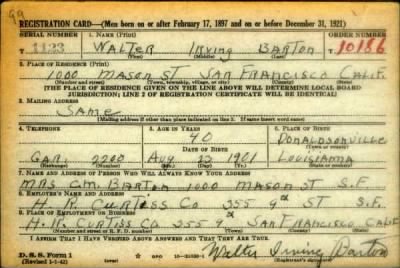 REGISTRATION CARD—(Men born on or after February 17, 1897 and on or before December 31, 1921)
SERIAL NUMBER 1. NAME (Print) ORDER NUMBER
T 1123 WALTER Irving BARTON T 10186
2. PLACE OF RESIDENCE (Print)
1000 MASON ST SAN FRANCISCO CALIF.
(Number and street) (Town, township, village, or city) (County) (State)
[THE PLACE OF RESIDENCE GIVEN ON THE LINE ABOVE WILL DETERMINE LOCAL BOARD
JURISDICTION; LINE 2 OF REGISTRATION CERTIFICATE WILL BE IDENTICAL]
3. MAILING ADDRESS
SAME
[Mailing address if other than place indicated on line 2. If same insert word same]
4. TELEPHONE 5. AGE IN YEARS 6. PLACE OF BIRTH
40 DONALDSONVILLE
DATE OF BIRTH (Town or county)
GAR. 2200 AUG 13 1901 LOUISIANNA
(Exchange) (Number) (Mo.) (Day) (Yr.) (State or country)
7. NAME AND ADDRESS OF PERSON WHO WILL ALWAYS KNOW YOUR ADDRESS
MRS CM BARTON 1000 MASON ST S.F.
8. EMPLOYER'S NAME AND ADDRESS
H. R. CURTISS CO 355 9th ST S.F.
9. PLACE OF EMPLOYMENT OR BUSINESS
H. R. CURTISS CO 355 9th SAN FRANCISCO CALIF
(Number and street or R. F. D. number) (Town) (County) (State)
I AFFIRM THAT I HAVE VERIFIED ABOVE ANSWERS AND THAT THEY ARE TRUE.
D. S. S. Form 1
(Revised 1-1-42) GPO Walter Irving Barton